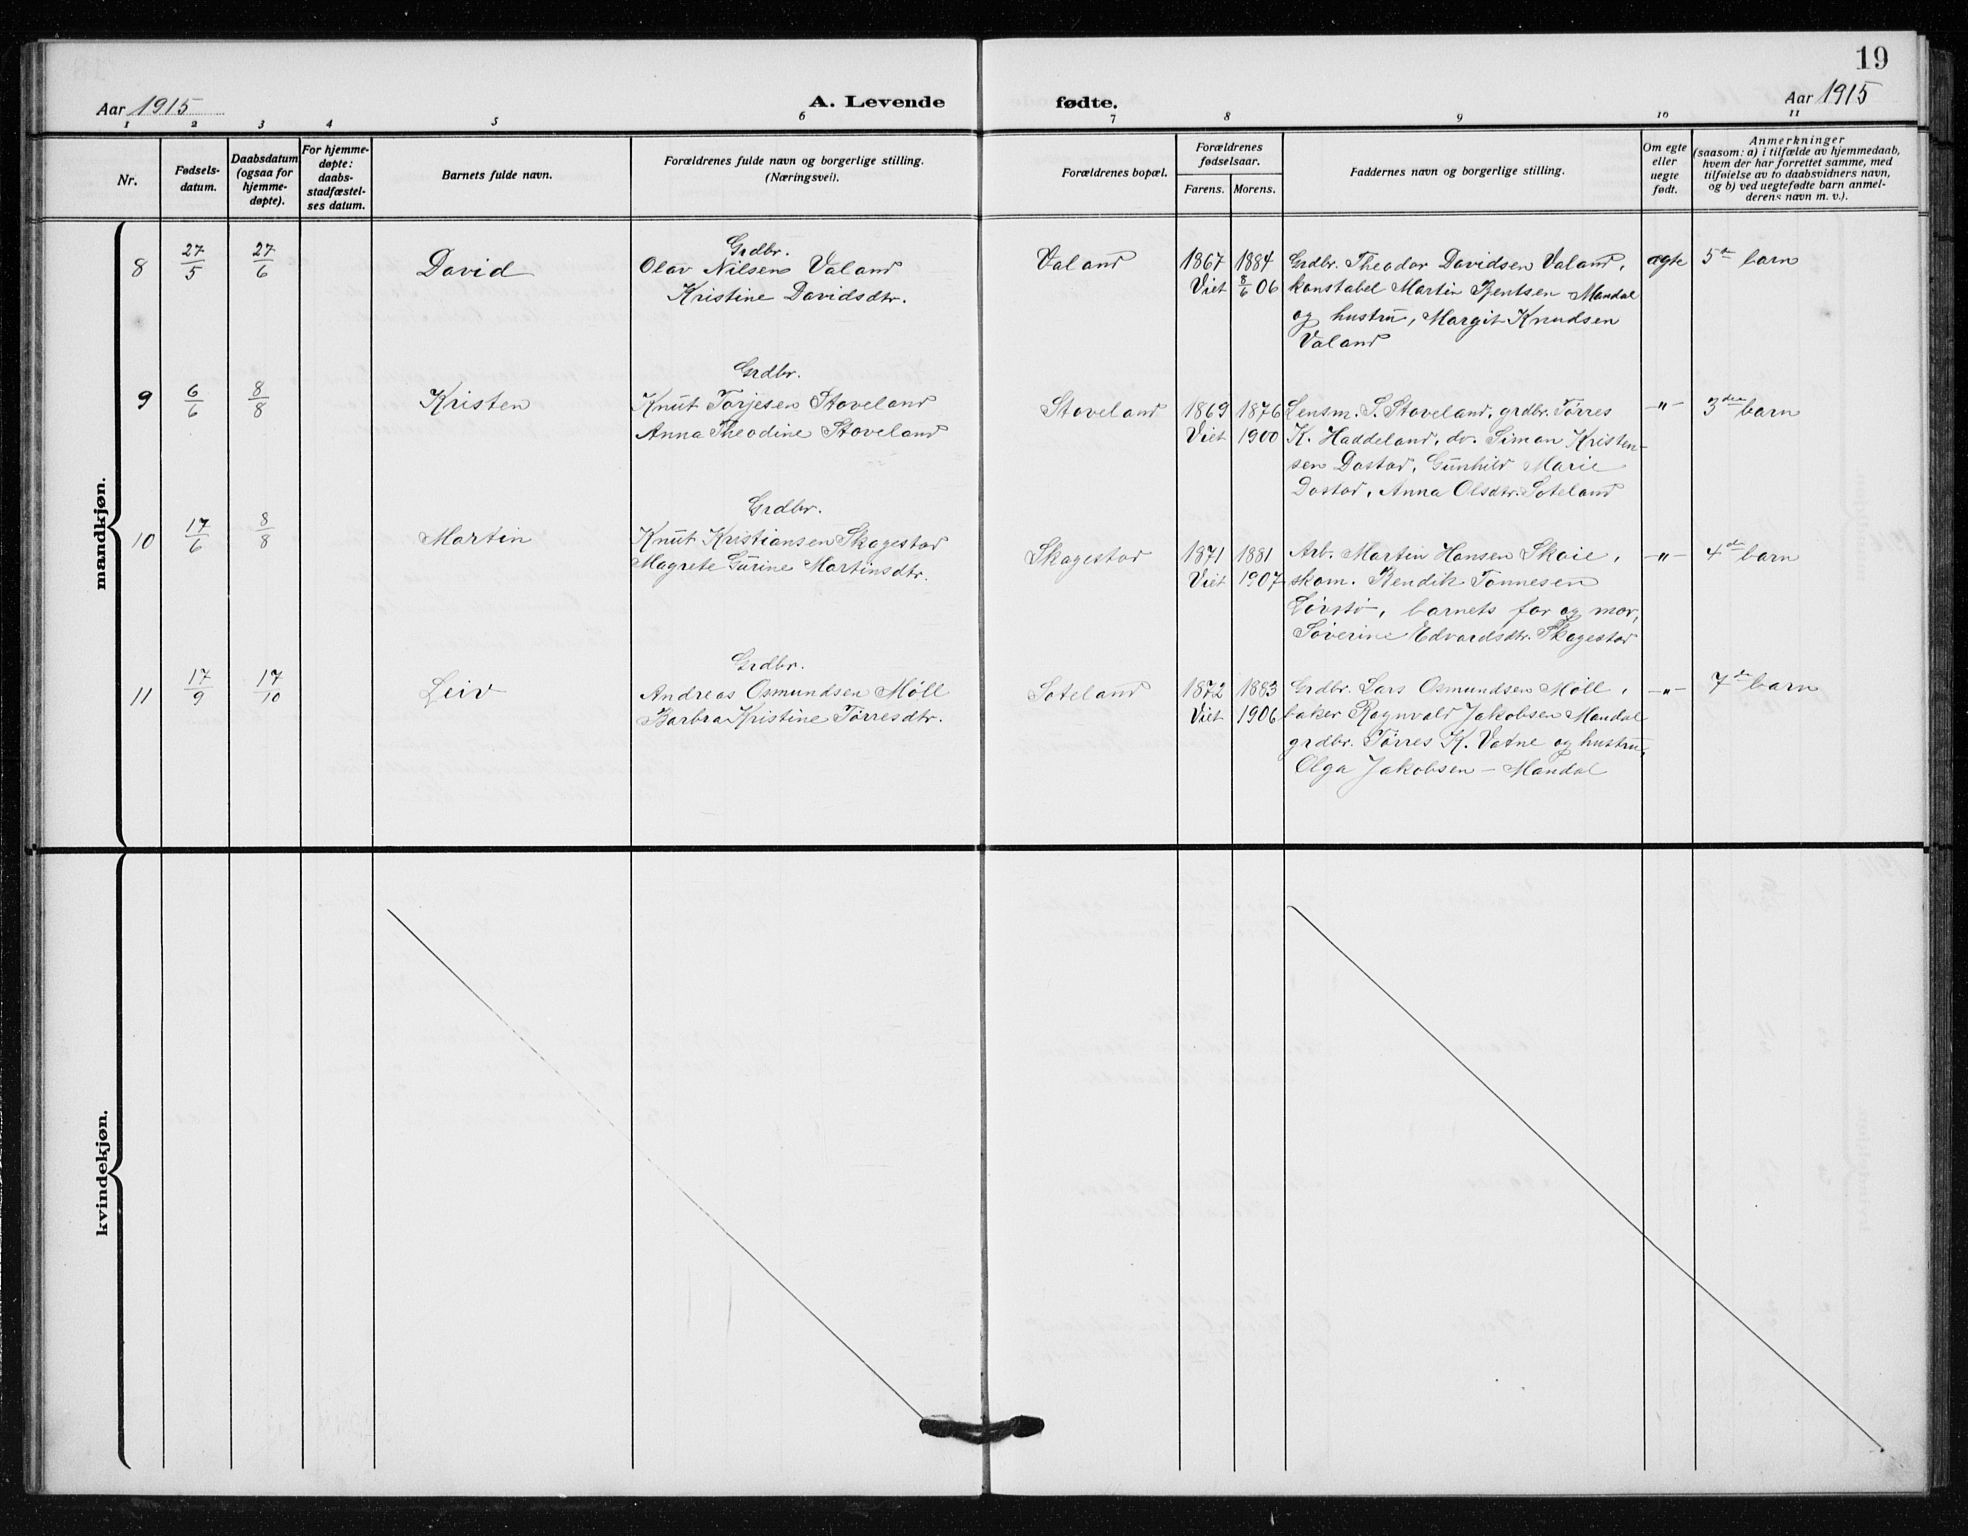 19
Aar 1915 A. Levende fødte. Aar 1915
1 2 3 4 5 6 7 8 9 10 11
Nr.
Fødsels-
datum.
Daabsdatum
(ogsaa for
hjemme-
døpte).
For hjemme-
døpte:
daabs-
stadfæstel-
ses datum.
Barnets fulde navn.
Forældrenes fulde navn og borgerlige stilling.
(Næringsvei).
Forældrenes bopæl.
Forældrenes
fødselsaar.
Farens. Morens.
Faddernes navn og borgerlige stilling.
Om egte
eller
uegte
født.
Anmerkninger
(saasom: a) i tilfælde av hjemmedaab,
hvem der har forrettet samme, med
tilføielse av to daabsvidners navn,
og b) ved uegtefødte barn anmel-
derens navn m. v.).
mandkjøn.
8 27/5 27/6 David
Grdbr.
Olav Nilsen Valand
Kristine Davidsdtr.
Valand
1867 1884
Viet 8/6 06
Grdbr. Theodor Davidsen Valand,
konstabel Martin Bentsen Mandal
og hustru, Margit Knudsen
Valand
ægte 5te barn
9 6/6 8/8 Kristen
Grdbr.
Knut Torjesen Stoveland
Anna Theodine Stoveland
Stoveland
1869 1876
Viet 1900
Lensm. S. Stoveland, grdbr. Tørres
K. Haddeland, do. Simon Kristen-
sen Dastad, Gunhild Marie
Dastad, Anna Olsdtr. Soteland
-"- 3die barn
10 17/6 8/8 Martin
Grdbr.
Knut Kristiansen Skagestad
Magrete Gurine Martinsdtr.
Skagestad
1871 1881
Viet 1907
Arb. Martin Hansen Skoie,
skom. Bendik Tønnesen
Løvstø, barnets far og mor,
Søverine Edvardsdtr. Skagestad
-"- 4de barn
11 17/9 17/10 Leiv
Grdbr.
Andreas Osmundsen Møll
Barbra Kristine Tørresdtr.
Soteland
1872 1883
Viet 1906
Grdbr. Lars Osmundsen Møll,
baker Ragnvald Jakobsen Mandal
grdbr. Tørres K. Vatne og hustru,
Olga Jakobsen - Mandal
-"- 7de barn
kvindekjøn.